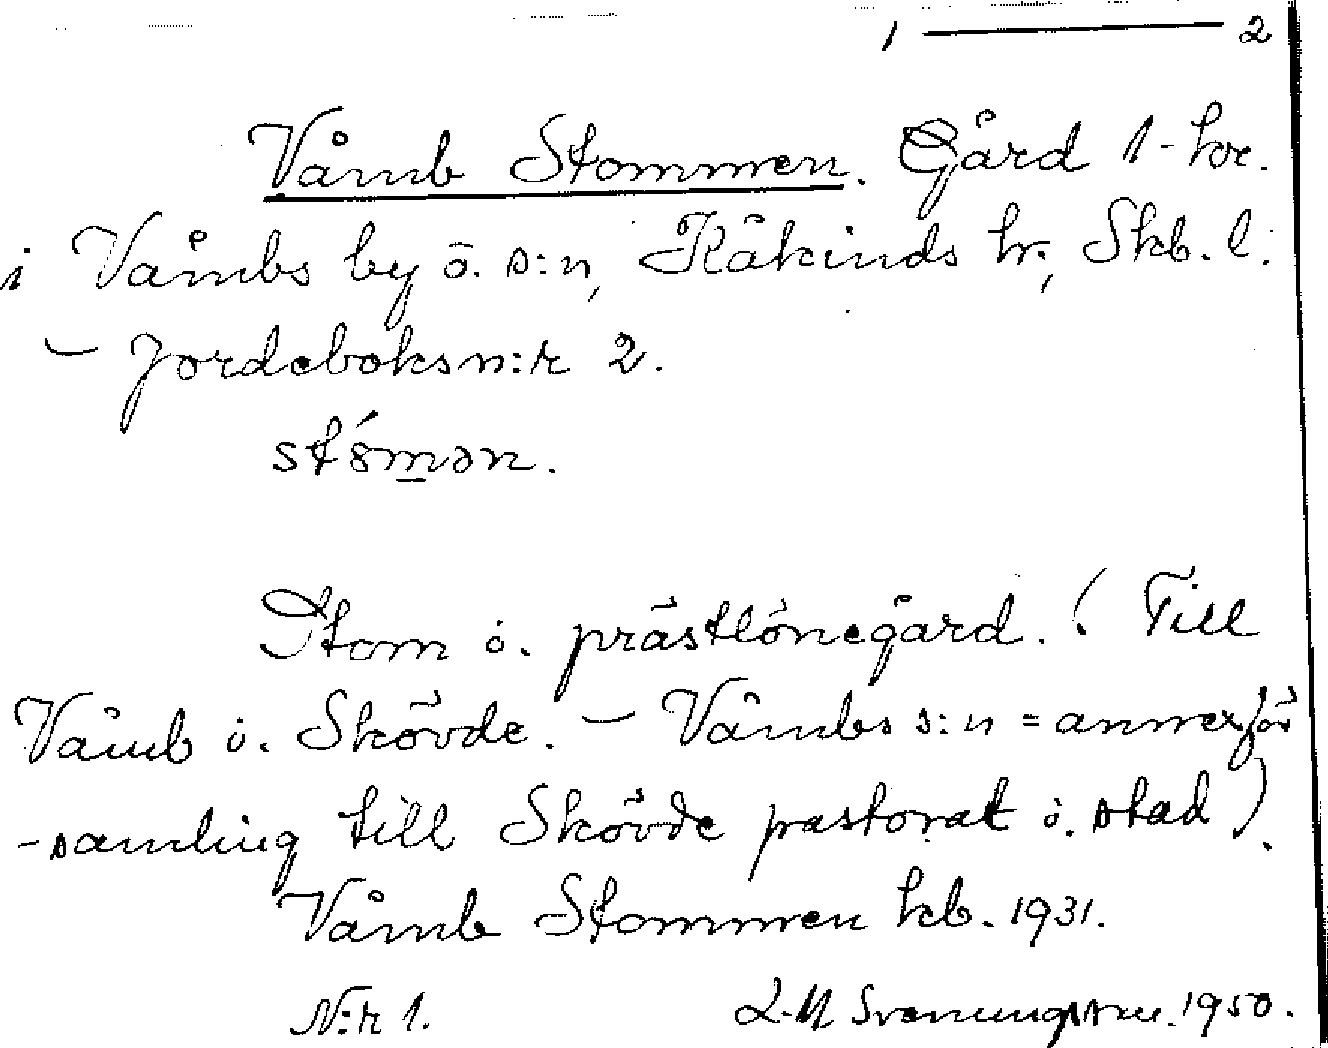 1 — 2
Våmb Stommen. Gård 1-hr.
i Våmbs by ö. s:n, Kåkinds hr., Skb. l.
– Jordeboksn:r 2.
stómən.
Stom ö. prästlönegård. (Till
Våmb ö. Skövde. – Våmbs s:n = annexför
-samling till Skövde pastorat ö. stad).
Våmb Stommen kb. 1931.
N:r 1. 1950.